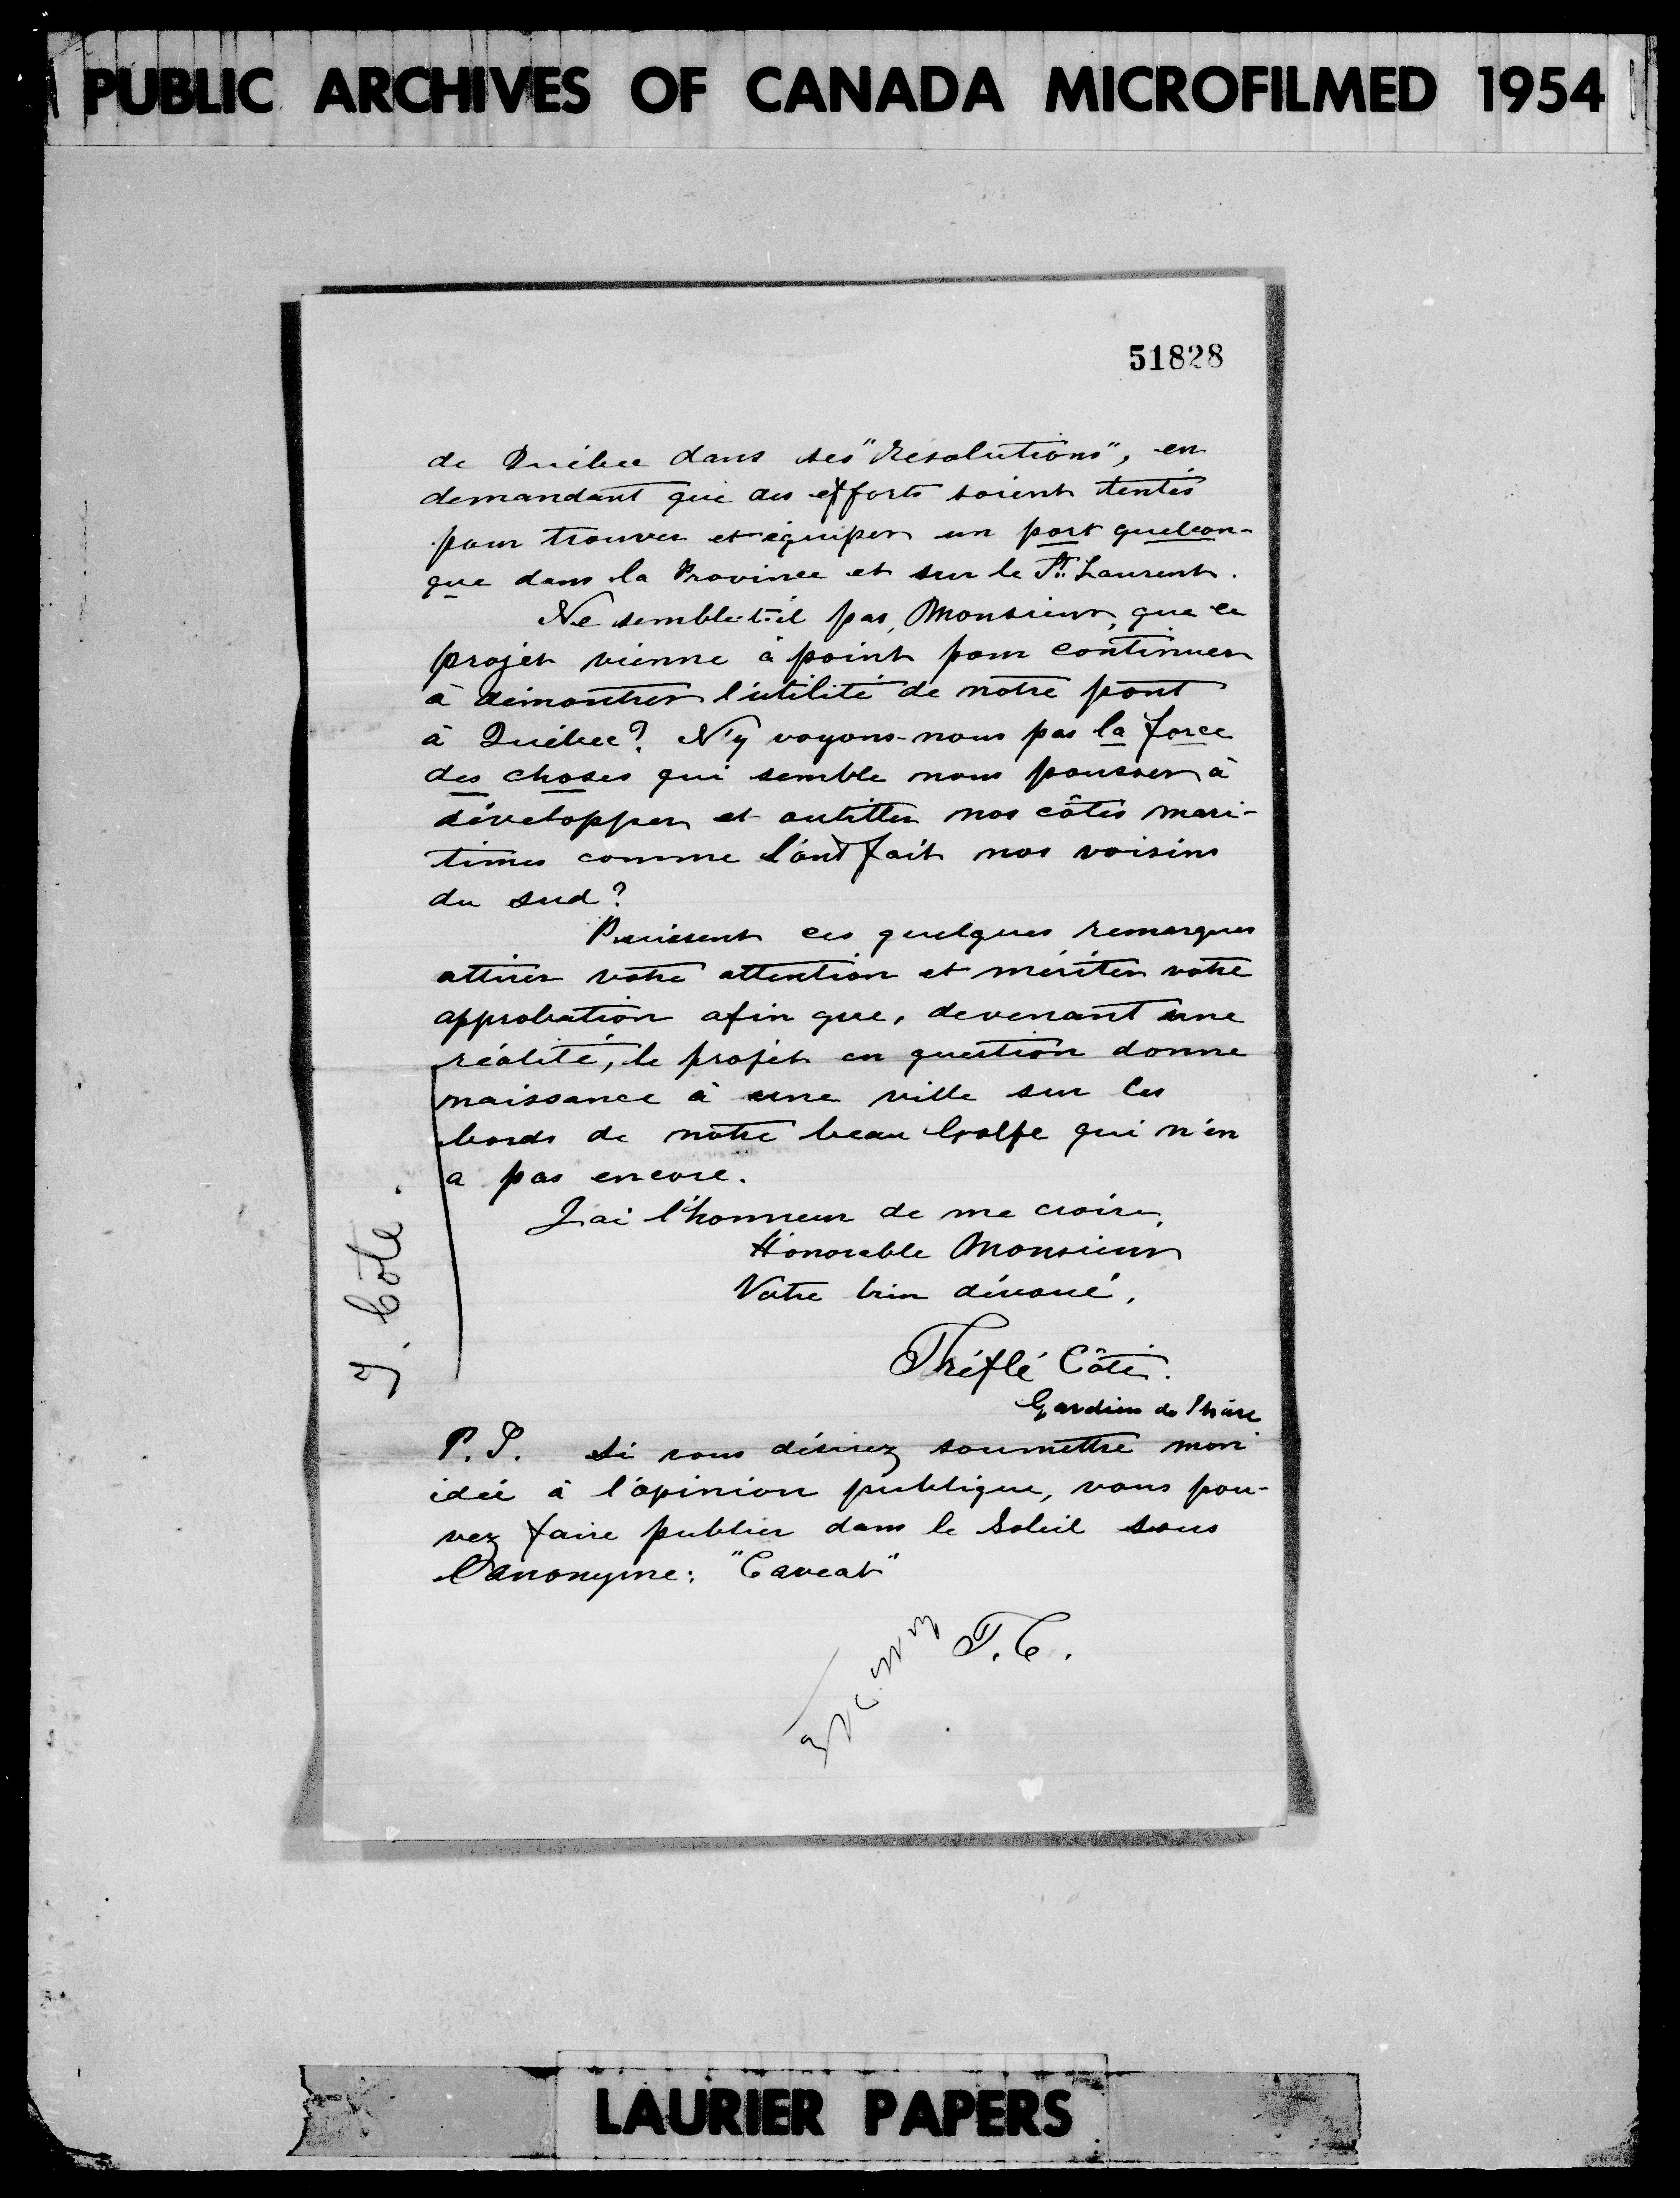 PUBLIC ARCHIVES OF CANADA MICROFILMED 1954
51828
de Québec dans ses "Resolutions", en
demandant que des efforts soient tentés
pour trouver et équiper un port quelcon-
que dans la Province et sur le St. Laurent.
Ne semble-t-il pas, Monsieur, que ce
projet vienne à point pour continuer
à démontrer l'utilité de notre pont
à Québec? N'y voyons-nous pas la force
des choses qui semble nous pousser à
développer et outiller nos côtes mari-
times comme l'ont fait nos voisins
du sud?
Puissent ces quelques remarques
attirer votre attention et mériter votre
approbation afin que, devenant une
réalité, le projet en question donne
naissance à une ville sur les
bords de notre beau Golfe qui n'en
a pas encore.
J'ai l'honneur de me croire,
Honorable Monsieur
Votre bien dévoué,
Théflé Côté.
Gardien de Phare
J. Cote.
P.S. Si vous désirez soumettre mon
idée à l'opinion publique, vous pou-
vez faire publier dans le Soleil sous
l'anonyme: "Caveat"
T.C.
LAURIER PAPERS